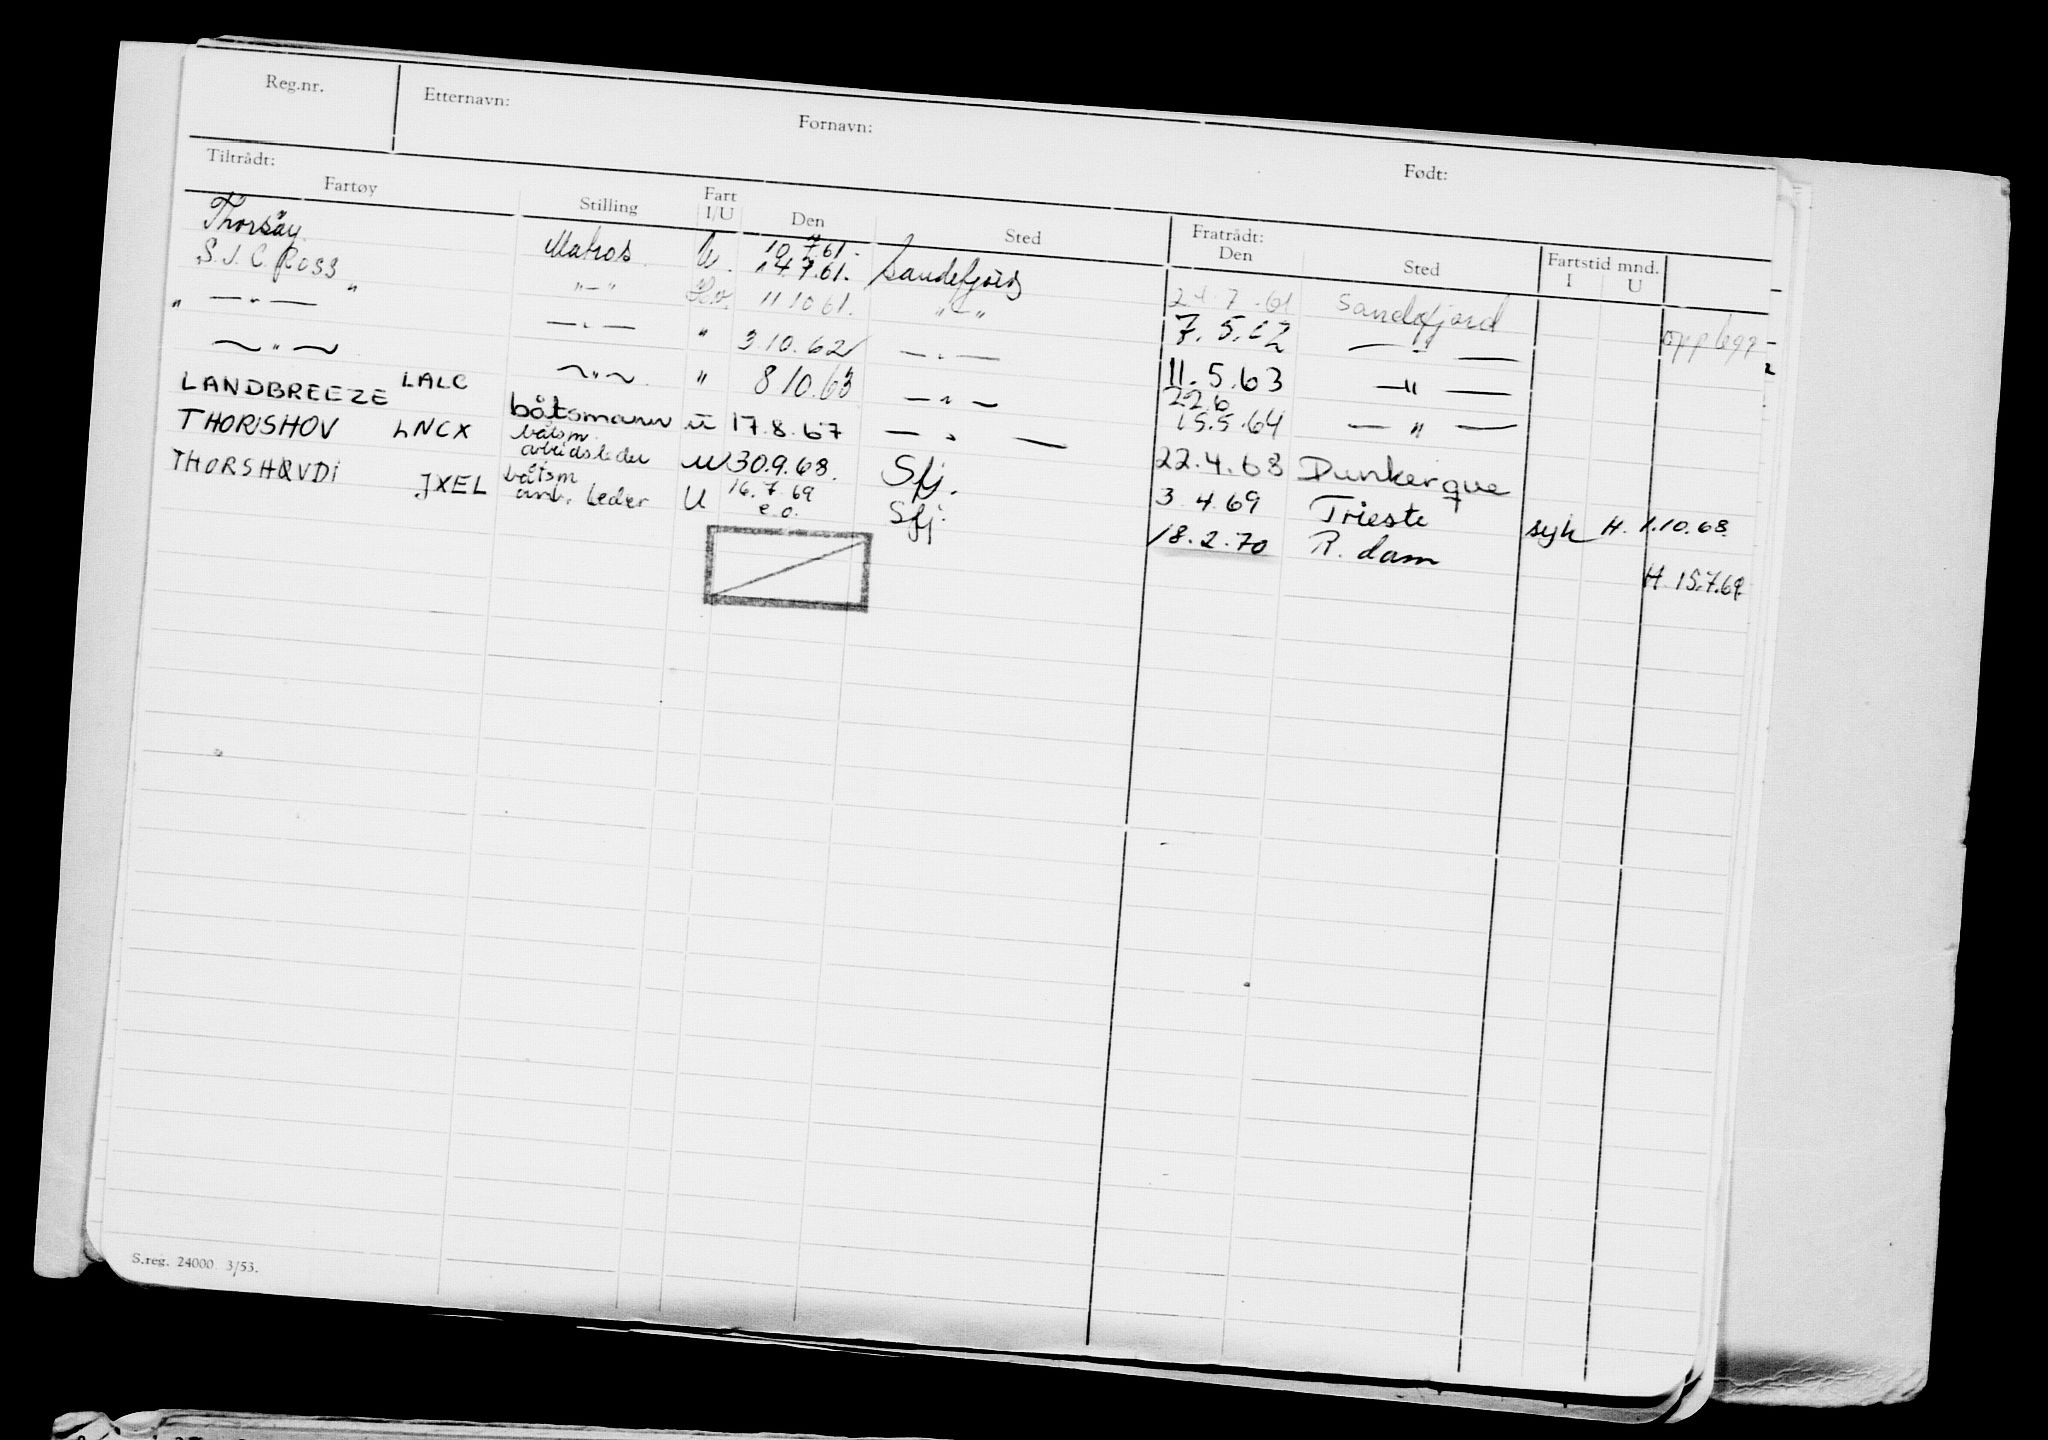 Reg.nr. Etternavn: Fornavn: Født:
Tiltrådt: Fratrådt:
Fartøy Stilling Fart I/U Den Sted Den Sted Fartstid mnd. I U
Thorsöy Matros U. 10.7.61. Sandefjord 24.7.61 Sandefjord opplegg
S.J.C. Ross " "–" 14.7.61. 11 10 61. "–" 7.5.62 — " —
" — " — — " — " 3.10.62 — " — 11.5.63 — " —
— " — — " — " 8 10.63 — " — 22.6 15.5.64 — " —
LANDBREEZE LALC båtsmann u 17.8.67 — " — 22.4.68 Dunkerque
THORSHOV LNCX båtsm. arbeidsleder u 30.9.68. Sfj. 3.4.69 Trieste syk H. 1.10.68
THORSHØVDI JXEL båtsm arb. leder U 16.7.69 e.o. Sfj. 18.2.70 R.dam H. 15.7.69
S.reg. 24000 3/53.